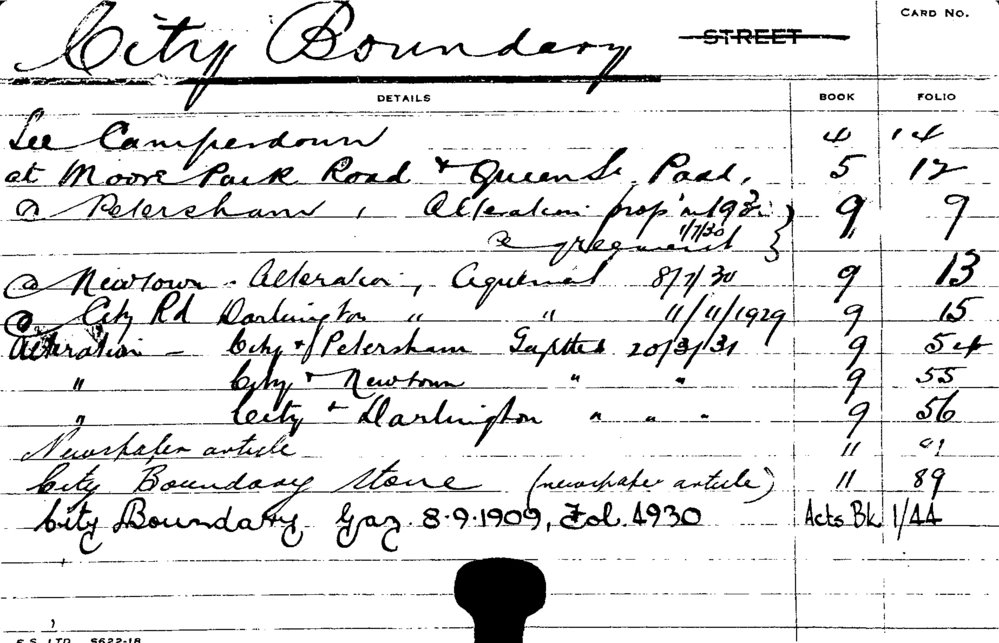 City Boundary STREET CARD NO.
DETAILS BOOK FOLIO
See Camperdown 4 14
at Moore Park Road & Queen St. Padd, 5 12
@ Petersham, Alteration 9 9
@ agreement 1/7/30 "
@ Newtown - Alteration, Agreement 8/7/30 9 13
@ City Rd Darlington " " 11/11/1929 9 15
Alteration - City & Petersham Gazetted 20/3/31 9 54
" City & Newtown " " 9 55
" City & Darlington " " " 9 56
Newspaper article 11
City Boundary Stone (newspaper article) 11 89
City Boundary Gaz. 8.9.1909, Fol. 4930 Acts Bk. 1/44
E.S. LTD. S622-18